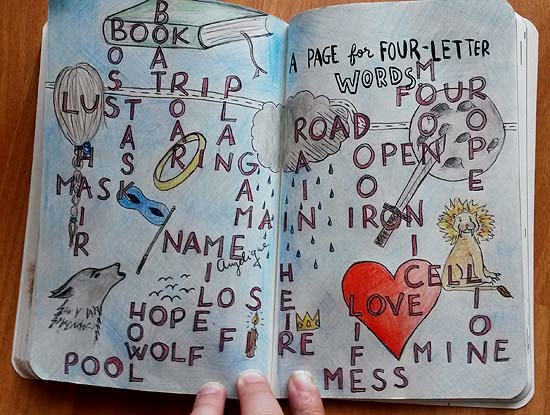 A PAGE for FOUR-LETTER
WORDS
BOOK
BOAT
BOSS
TRIP
LUST
TASK
ROAR
PLAN
RING
HAIR
MASK
GAME
MAIN
NAME
Angelique
MILE
HOPE
HOWL
WOLF
POOL
FOUR
MOON
ROPE
ROAD
RAIN
DOOR
OPEN
IRON
NICE
CELL
LION
HEIR
LOVE
LIFE
MINE
MESS